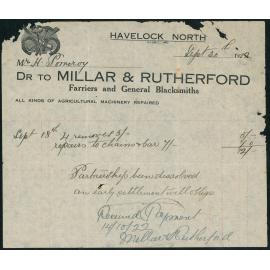 HAVELOCK NORTH
Sept 20th
Mr H. Pomeroy
DR TO MILLAR & RUTHERFORD
Farriers and General Blacksmiths
ALL KINDS OF AGRICULTURAL MACHINERY REPAIRED
Sept 18th 4 removes 5/-
repairs to chains & bar 7/-
Partnership been dissolved
an early settlement will oblige
Received Payment
14/10/22
Millar & Rutherford